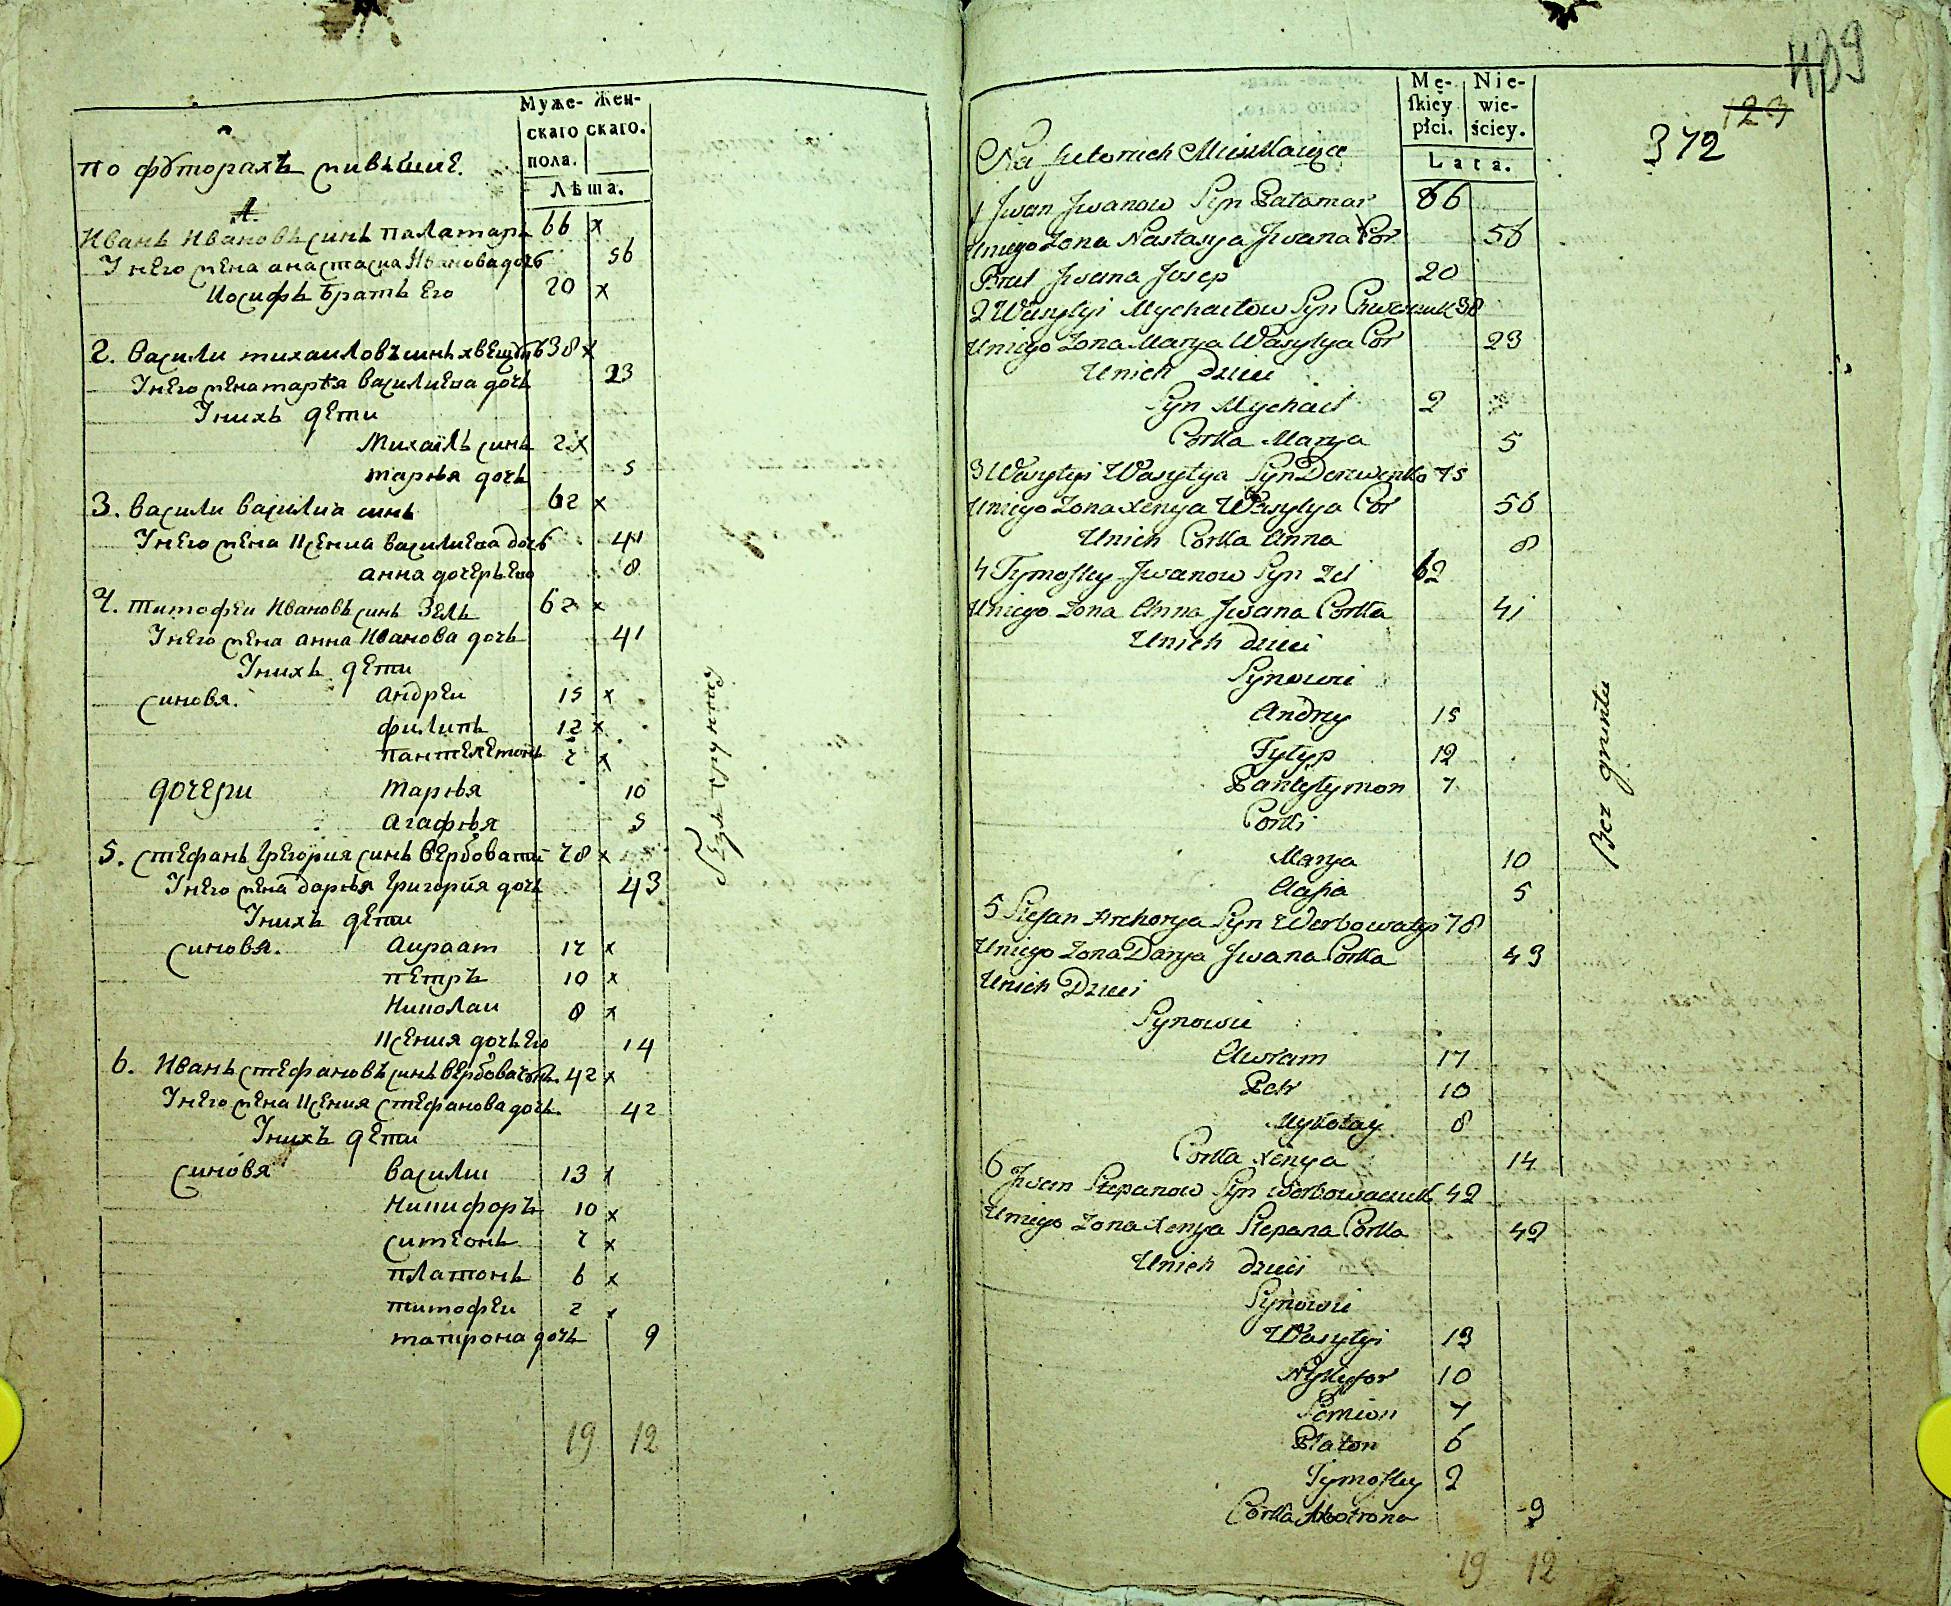 Муже- Жен-
скаго скаго.
пола.
Лѣта.
по футорахъ живъшие.
1.
Иванъ Ивановъ синъ паламаръ 66 x
Унего жена анастасиа Иванова дочь 56
Иосифъ братъ Его 20 x
2. Васили михаиловъ синъ 38 x
Унего жена маръя василиева дочь 23
Унихъ дети
Михаилъ синъ 2 x
маръя дочь 5
3. васили василиа синъ 62 x
Унего жена ксения василиева дочь 41
анна дочерь Его 8
4. тимофеи Ивановъ синъ Зель 62 x
Унего жена анна Иванова дочь 41
Унихъ дети
синовя. андреи 15 x
филипъ 12 x
пантелемонъ 7 x
дочери маръя 10
агафъя 5
5. стефанъ Григория синъ вербовати 78 x
Унего жена даръя Григория дочь 43
Унихъ дети
синовя. авраам 17 x
петръ 10 x
Николаи 8 x
ксения дочь Его 14
6. Иванъ стефановъ синъ 42 x
Унего жена ксения стефанова дочь. 42
Унихъ дети
синовя васили 13 x
Никифоръ 10 x
симеонъ 7 x
платонъ 6 x
тимофеи 2 x
матрона дочь 9
19 12
Безъ грунту
439
123
372
Mę- Nie-
skiey wie-
płci. ściey.
Lata.
Na futorach Mieszkaiące
1 Jwan Jwanow Syn Pałamar 66
Uniego Zona Nastasya Jwana Cor 56
Brat Jwana Josep 20
2 Wasylyi Mychaiłow Syn 38
Uniego Zona Marya Wasylya Cor 23
Unich Dzieci
Syn Mychail 2
Corka Marya 5
3 Wasylyi Wasylya Syn 75
Uniego Zona Xenya Wasylya Cor 56
Unich Corka Anna 8
4 Tymofley Jwanow Syn Zel 62
Uniego Zona Anna Jwana Corka 41
Unich Dzieci
Synowie
Andrey 15
Fylyp 12
Pantylymon 7
Corki
Marya 10
5
5 Stefan Syn Werbowatyi 78
Uniego Zona Darya Jwana Corka 43
Unich Dzieci
Synowie
Awram 17
Petr 10
Mykołay 8
Corka Xenya 14
6 Jwan Stepanow Syn 42
Uniego Zona Xenya Stepana Corka 42
Unich Dzieci
Synowie
Wasylyi 13
Nykyfor 10
Semion 7
Płaton 6
Tymofley 2
Corka Motrona 9
19 12
Bez gruntu